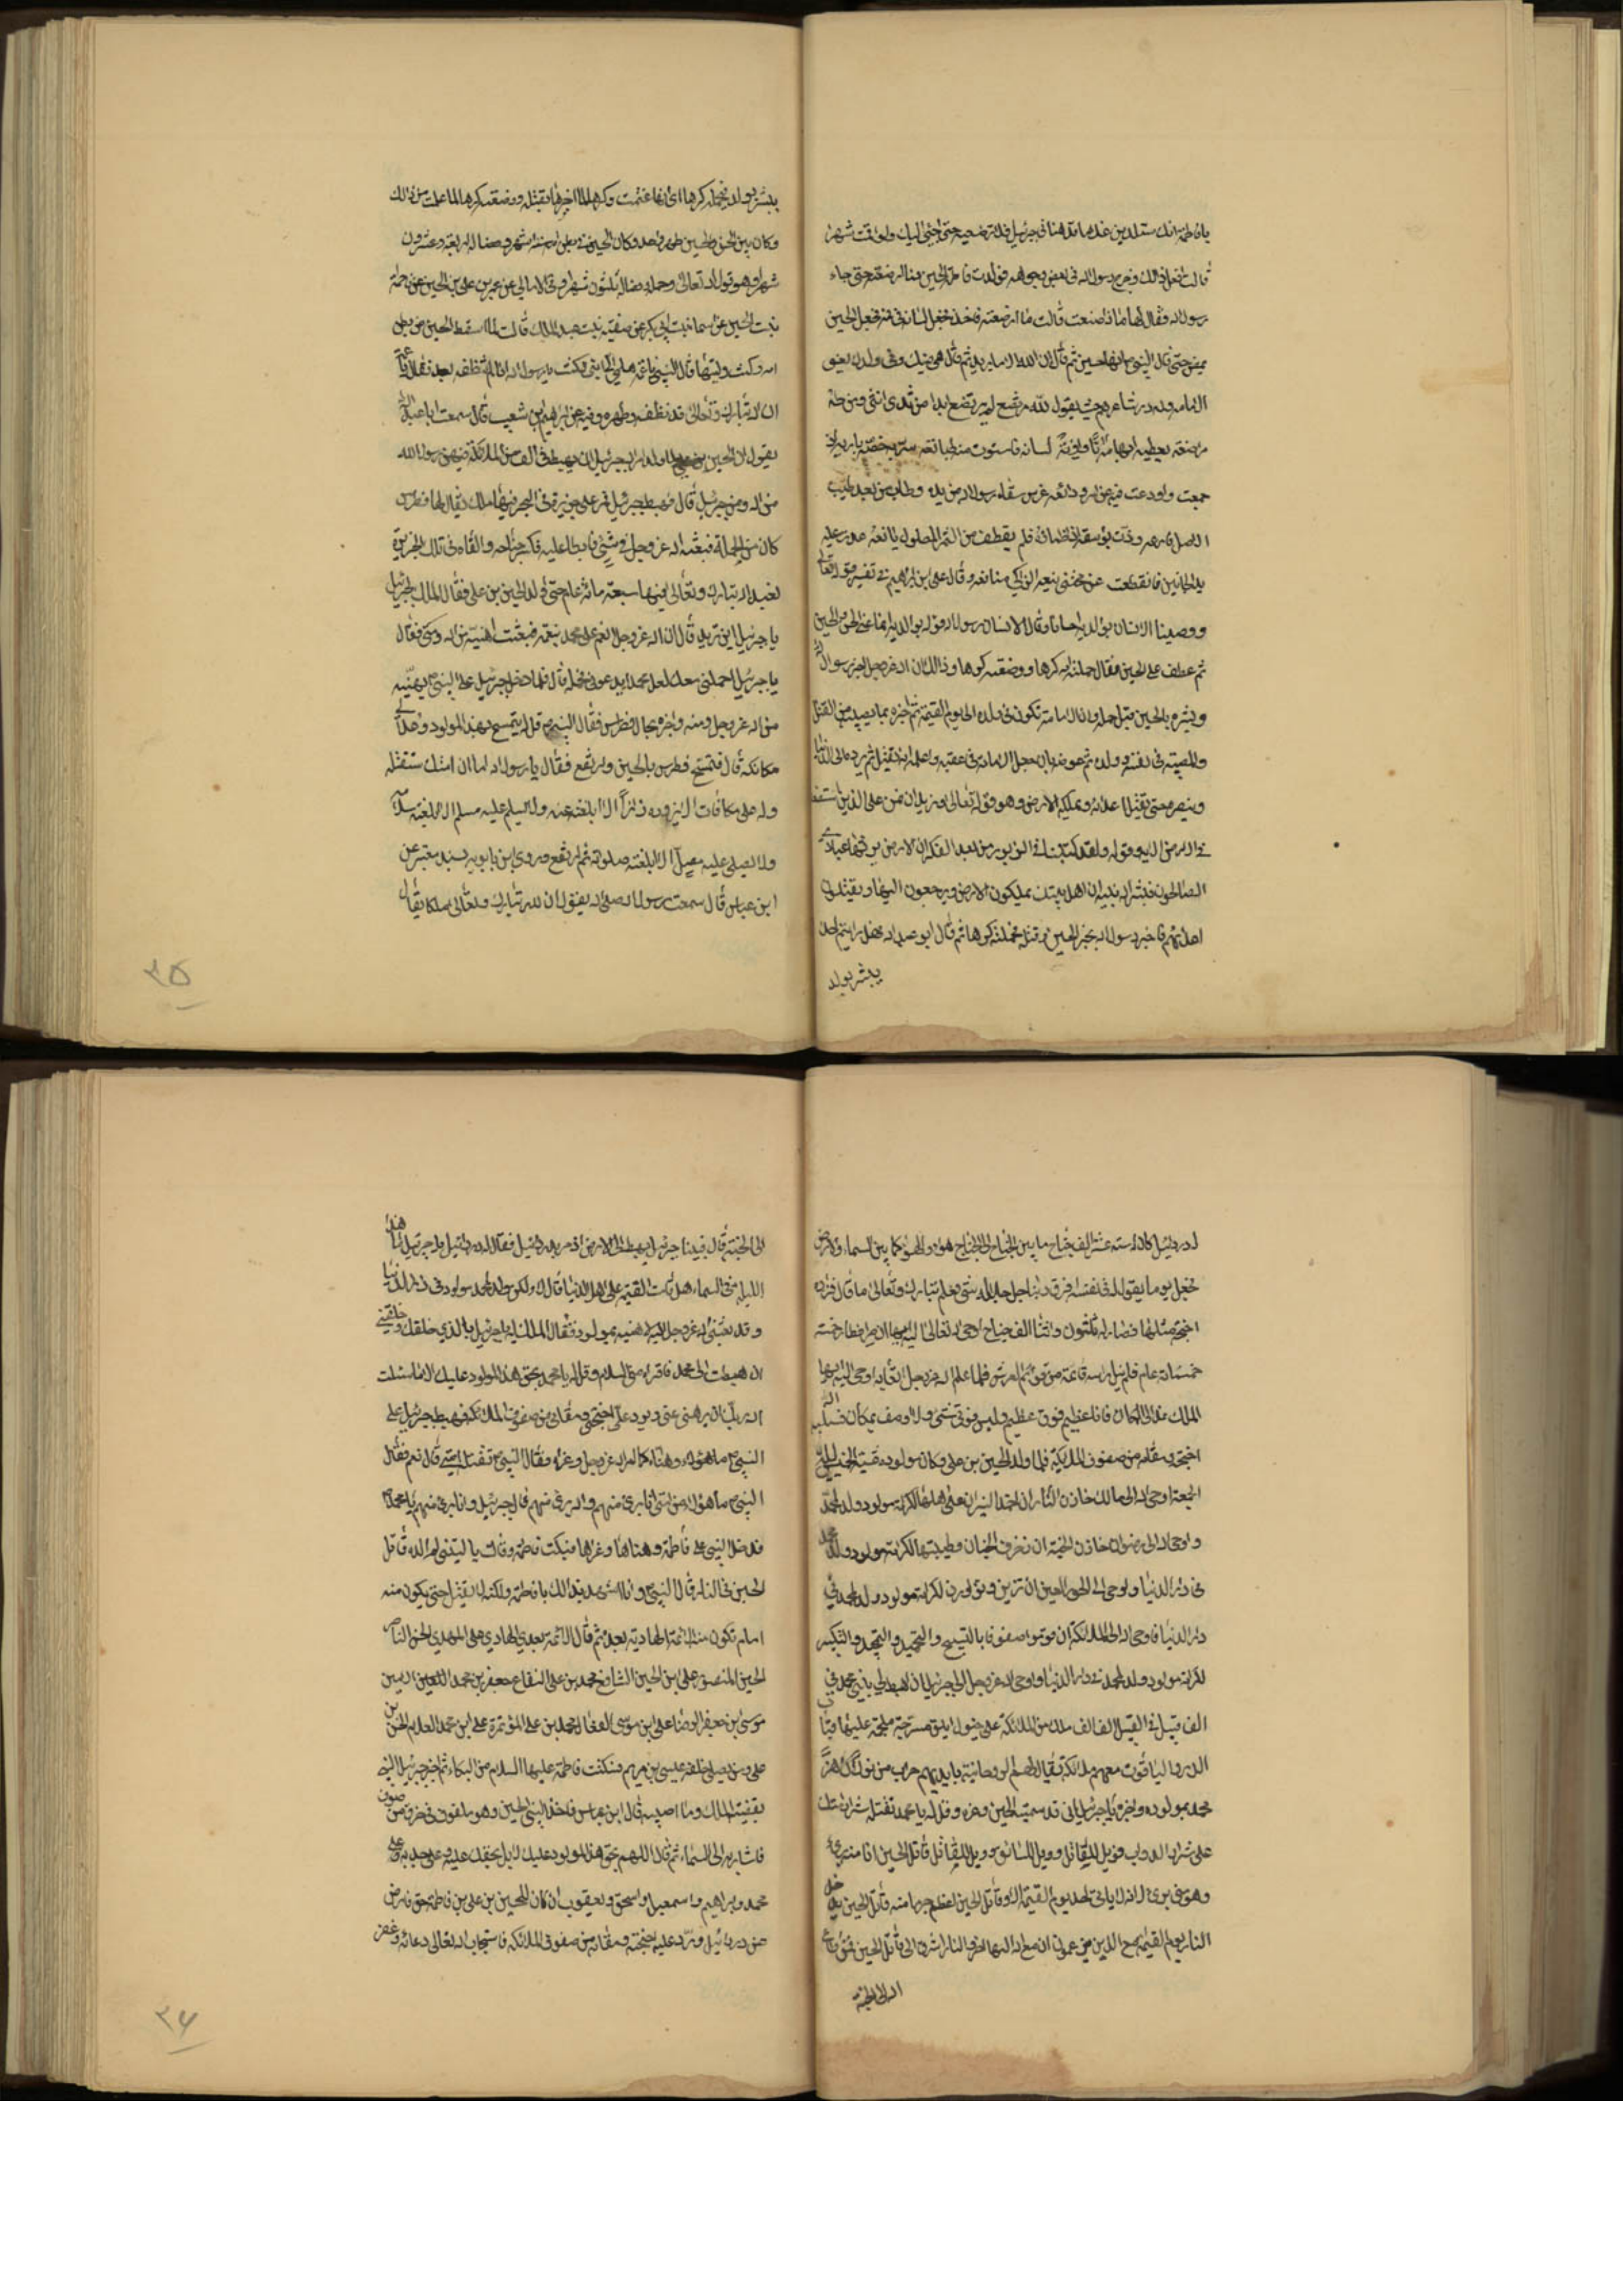 يا فاطمة انك ستلدين غلاما قد هنانى به جبرئيل فلا ترضعيه حتى اجئ اليك ولو اقمت شهرا
قالت افعل ذلك وخرج رسول الله في بعض وجوهه فولدت فاطمة الحسين فما ارضعته حتى جاء
رسول الله فقال لها ماذا صنعت قالت ما ارضعته فاخذه فجعل لسانه في فمه فجعل الحسين
يمص حتى قال النبي ايها حسين ثم قال ابى الله الا ما يريد ثم قال هى فيك وفي ولدك يعنى
الامامة ولله در شاعرهم حيث يقول لله مرتضع لم يرتضع ابدا من ثدى انثى ومن طه
مراضعه يعطيه ابهامه آنا وآونة لسانه فاستوت منه طبائعه
ووصينا الانسان بوالديه احسانا وقال الانسان رسول الله قوله بوالديه انما عنى الحسن والحسين
ثم عطف على الحسين فقال حملته امه كرها ووضعته كرها وذلك ان الله عز وجل اخبر رسول الله
وبشره بالحسين قبل حمله وان الامامة تكون في ولده الى يوم القيمة ثم اخبره بما يصيبه من القتل
والمصيبة في نفسه وولده ثم عوضه بان جعل الامامة في عقبه واعلمه انه يقتل ثم يرده الى الدنيا
وينصره حتى يقتل اعدائه ويملكه الارض وهو قوله تعالى ونريد ان نمن على الذين استضعفوا
في الارض الاية وقوله ولقد كتبنا في الزبور من بعد الذكر ان الارض يرثها عبادى
الصالحون فبشر الله نبيه ان اهل بيتك يملكون الارض ويرجعون اليها ويقتلون
اعدائهم فاخبر رسول الله بخبر الحسين وقتله فحملته كرها ثم قال ابو عبد الله فهل رايتم احدا
يبشر بولد
يبشر بولد فيحمله كرها اى انها اغتمت وكرهت لما اخبرها بقتله ووضعته كرها لما علمت من ذلك
وكان بين الحسن والحسين طهر واحد وكان الحسين في بطن امه ستة اشهر وفصاله اربعة وعشرون
شهرا وهو قول الله تعالى وحمله وفصاله ثلثون شهرا وفي الامالى عن عمر بن على بن الحسين عن فاطمة
بنت الحسين عن اسماء بنت ابى بكر عن صفيه بنت عبد المطلب قالت لما سقط الحسين من بطن
امه وكنت وليتها قال النبي يا عمه هلمى الى ابنى فقلت يا رسول الله انا لم ننظفه بعد فقال يا عمة
ان الله تبارك وتعالى قد نظفه وطهره وفيه عن ابراهيم بن شعيب قال سمعت ابا عبد الله
يقول ان الحسين بن على لما ولد امر الله جبرئيل ان يهبط في الف من الملائكة فيهنى رسول الله
من الله ومن جبرئيل قال فهبط جبرئيل فمر على جزيرة في البحر فيها ملك يقال لها فطرس
كان من الحملة فبعثه الله عز وجل في شئ فابطا عليه فكسر جناحه والقاه في تلك الجزيرة
فعبد الله تبارك وتعالى فيها سبعة مائة عام حتى ولد الحسين بن على فقال الملك لجبرئيل
يا جبرئيل اين تريد قال ان الله عز وجل انعم على محمد بنعمة فبعثت اهنيه من الله ومنى فقال
يا جبرئيل احملنى معك لعل محمدا يدعو لى فحمله قال فلما دخل جبرئيل على النبي يهنئه
من الله عز وجل ومنه واخبره بحال فطرس فقال النبي قل له يتمسح بهذا المولود وعد الى
مكانك قال فتمسح فطرس بالحسين وارتفع فقال يا رسول الله اما ان امتك ستقتله
وله على مكافات الا يزوره زائر الا ابلغته عنه ولا يسلم عليه مسلم الا ابلغته سلامه
ولا يصلى عليه مصل الا ابلغته صلوته ثم ارتفع وروى ابن بابويه بسند معتبر عن
ابن عباس قال سمعت رسول الله صلى الله يقول ان لله تبارك وتعالى ملكا يقال
٣٥
له دردائيل كان له ستة عشر الف جناح ما بين الجناح الى الجناح هواء والهواء كما بين السماء والارض
فجعل يوما يقول في نفسه افوق ربنا جل جلاله شئ فعلم تبارك وتعالى ما قال فزاده
اجنحة مثلها فصار له ثلثون واثنا الف جناح ثم اوحى الله تعالى اليه
خمسمائة عام فلم ينل راسه قائمة من قوائم العرش فلما علم الله عز وجل اتعابه اوحى اليه ايها
الملك عد الى مكانك فانا عظيم فوق عظيم وليس فوقى شئ ولا اوصف بمكان فسلبه الله
اجنحته ومقامه من صفوف الملائكة فلما ولد الحسين بن على وكان مولوده عشية الخميس ليلة
الجمعة اوحى الله الى مالك خازن النار ان اخمد النيران على اهلها لكرامة مولود ولد لمحمد
واوحى الله الى رضوان خازن الجنة ان زخرف الجنان وطيبها لكرامة مولود ولد لمحمد
في دار الدنيا واوحى الى الحور العين ان تزين وتزاورن لكرامة مولود ولد لمحمد في
دار الدنيا واوحى الله الى الملائكة ان قوموا صفوفا بالتسبيح والتحميد والتمجيد والتكبير
لكرامة مولود ولد لمحمد في دار الدنيا واوحى الله عز وجل الى جبرئيل ان اهبط الى نبيى محمد في
الف قبيل في القبيل الف الف ملك من الملائكة على خيول ابلق مسرجة ملجمة عليها قباب
الدر والياقوت معهم ملائكة يقال لهم الروحانية بايديهم حراب من نور ان هنوا
محمد بمولوده واخبره يا جبرئيل انى قد سميته الحسين وعزه وقل له يا محمد تقتله شرار امتك
على شرار الدواب فويل للقاتل وويل للسائق وويل للقائد قاتل الحسين انا منه برئ
وهو منى برئ لانه لا ياتى احد يوم القيمة الا وقاتل الحسين اعظم جرما منه قاتل الحسين يدخل
النار يوم القيمة مع الذين يزعمون ان مع الله الها اخر والنار اشوق الى قاتل الحسين ممن اطاع
الله الى الجنة
الى الجنة قال فبينا جبرئيل يهبط الى الارض اذ مر بدردائيل فقال له دردائيل يا جبرئيل ما هذه
الليلة في السماء هل قامت القيمة على اهل الدنيا قال لا ولكن ولد لمحمد مولود في دار الدنيا
وقد بعثنى الله عز وجل اليه لاهنيه بمولوده فقال الملك له يا جبرئيل بالذي خلقك وخلقنى
ان هبطت الى محمد فاقرئه منى السلام وقل له يا محمد بحق هذا المولود عليك الا ما سئلت
الله ربك ان يرضى عنى ويرد على اجنحتى ومقامى من صفوف الملائكة فهبط جبرئيل على
النبي وهناه كما امره الله عز وجل وعزاه فقال النبي تقتله امتى قال نعم فقال
النبي ما هؤلاء من امتى انا برئ منهم والله برئ منهم قال جبرئيل وانا برئ منهم يا محمد
فدخل النبي على فاطمة وهناها وعزاها فبكت فاطمة وقالت يا ليتنى لم الده قاتل
الحسين في النار قال النبي وانا اشهد بذلك يا فاطمة ولكنه لا يقتل حتى يكون منه
امام تكون منه الائمة الهادية بعده ثم قال الائمة بعدى الهادى على المهدى الحسن الناصر
الحسين المنصور على بن الحسين الشافع محمد بن على النفاع جعفر بن محمد الامين
موسى بن جعفر الرضا على بن موسى الفعال محمد بن على المؤتمن على بن محمد العلام الحسن بن
على ومن يصلى خلفه عيسى بن مريم فسكتت فاطمة عليها السلام من البكاء ثم اخبر جبرئيل النبي
بقضية الملك وما اصيب به قال ابن عباس فاخذ النبي الحسين وهو ملفوف في خرق من صوف
فاشار به الى السماء ثم قال اللهم بحق هذا المولود عليك لا بل بحقك عليه وعلى جده
محمد وابراهيم واسمعيل واسحق ويعقوب ان كان للحسين بن على بن فاطمة حق فارض
عن دردائيل ورد عليه اجنحته ومقامه من صفوف الملائكة فاستجاب الله تعالى دعائه وغفر
٣٦